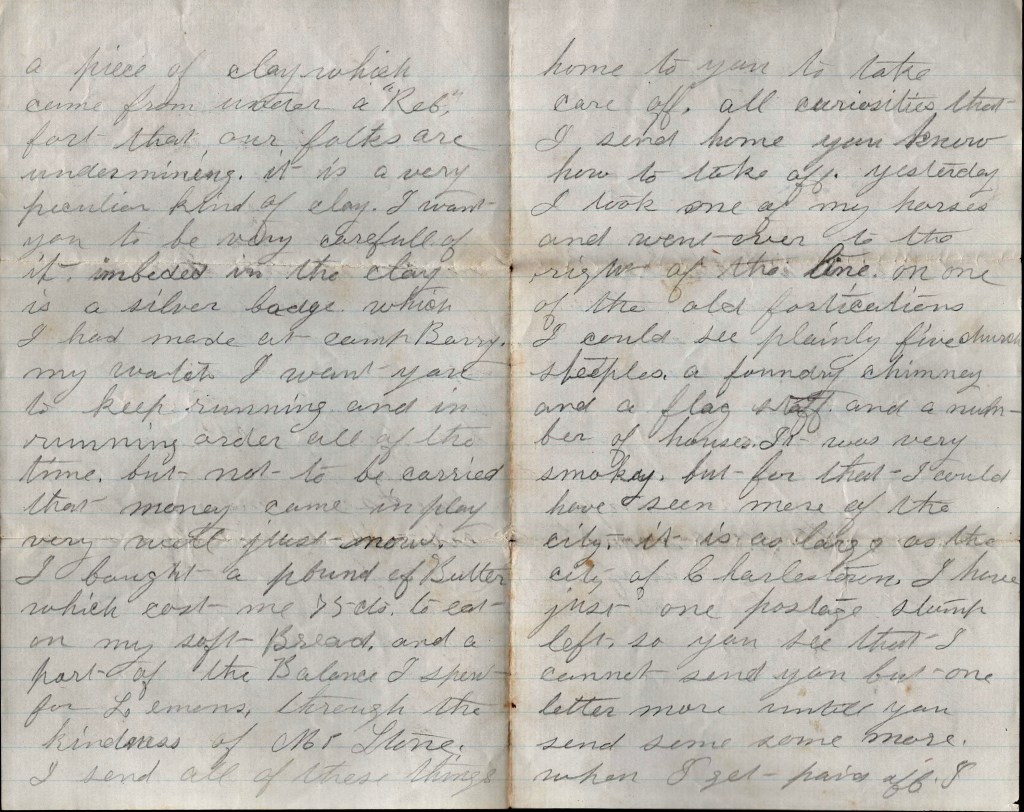 a piece of clay which
came from under a "Reb"
fort that our folks are
undermining. it is a very
peculiar kind of clay. I want
you to be very carefull of
it. imbeded in the clay
is a silver badge which
I had made at camp Barry.
my watch I want you
to keep running and in
running order all of the
time. but not to be carried
that money came in play
very well just now.
I bought a pound of Butter
which cost me 75 cts. to eat
on my soft Bread. and a
part of the Balance I spent
for Lemons, through the
kindness of Mr Stone.
I send all of these things
home to you to take
care off. all curiosities that
I send home you know
how to take off. yesterday
I took one of my horses
and went over to the
right of the line. on one
of the old fortications
I could see plainly five church
steeples. a foundry chimney
and a flag staff. and a num-
ber of houses. It was very
smokey. but for that I could
have seen more of the
city. it is as large as the
city of Charlestown. I have
just one postage stamp
left. so you see that I
cannot send you but one
letter more untill you
send some some more.
when I get paid off. I